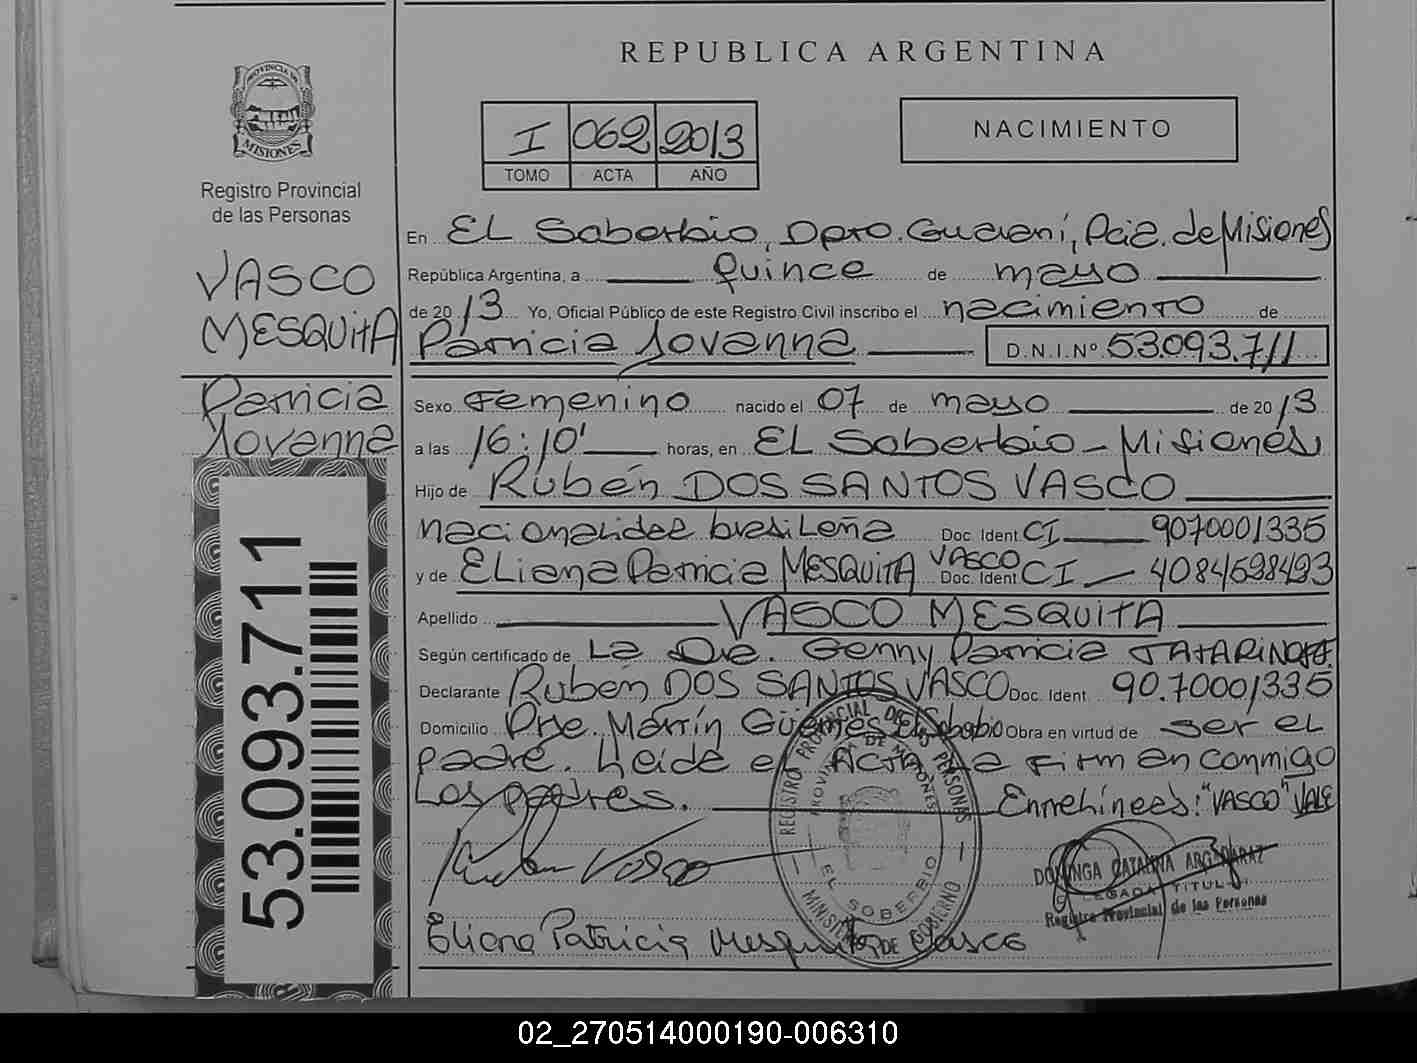 REPUBLICA ARGENTINA
PROVINCIA DE
MISIONES
Registro Provincial
de las Personas
VASCO
MESQUITA
Patricia
Jovanna
53.093.711
I 062 2013
TOMO ACTA AÑO
NACIMIENTO
En EL Soberbio, Dpto. Guaraní, Pcia. de Misiones
República Argentina, a quince de mayo
de 2013 Yo, Oficial Público de este Registro Civil inscribo el nacimiento de
Patricia Jovanna D.N.I.Nº 53.093.711
Sexo Femenino nacido el 07 de mayo de 2013
a las 16:10' horas, en EL Soberbio - Misiones
Hijo de Rubén DOS SANTOS VASCO
nacionalidad brasileña Doc. Ident. CI 9070001335
y de Eliana Patricia MESQUITA VASCO Doc. Ident. CI 4084698493
Apellido VASCO MESQUITA
Según certificado de La Dra. Genny Patricia
Declarante Rubén DOS SANTOS VASCO Doc. Ident. 90.70001335
Domicilio Pje. Martín Güemes El Soberbio Obra en virtud de ser el
padre. Leída el Acta la firman conmigo
Los padres. Entrelíneas: "VASCO" VALE
Ruben Vasco
Eliana Patricia Mesquita Vasco
REGISTRO PROVINCIAL DE LAS PERSONAS
PROVINCIA DE MISIONES
EL SOBERBIO
MINISTERIO DE GOBIERNO
DOMINGA CATALINA
DELEGADA TITULAR
Registro Provincial de las Personas
02_270514000190-006310